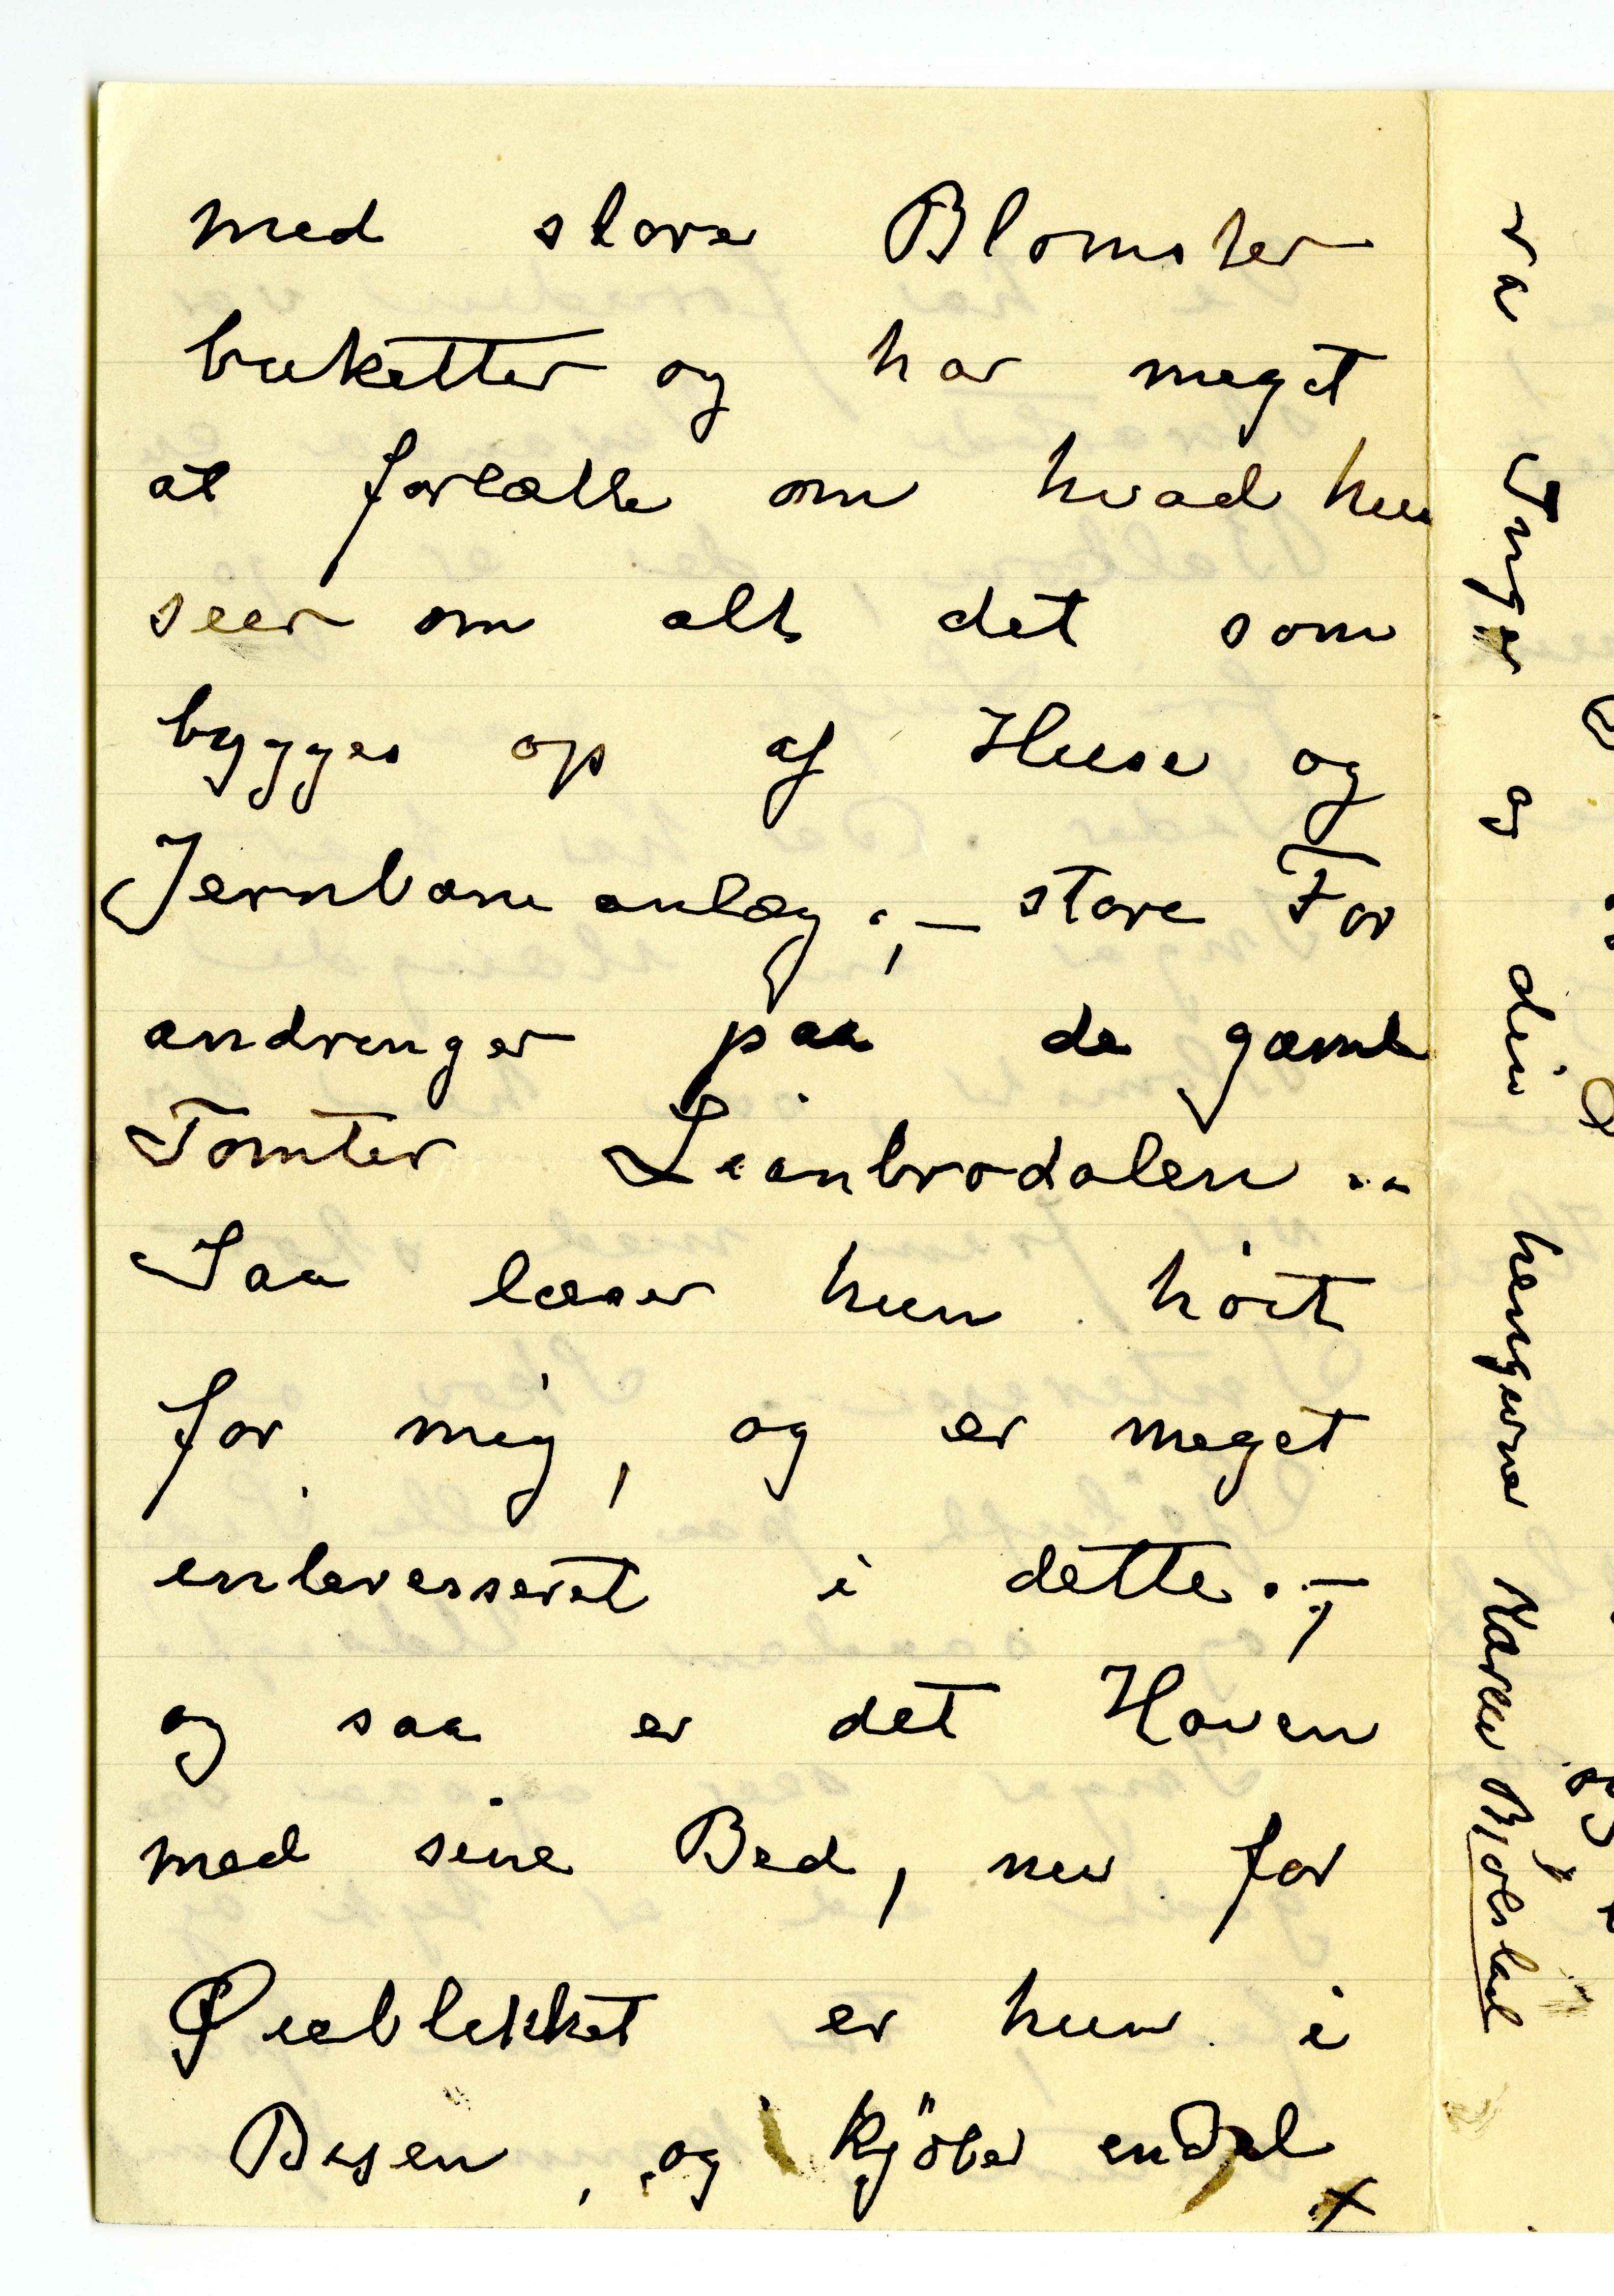 med store Blomster
buketter og har meget
at fortælle om hvad hun
seer om alt det som
bygges op af Huse og
Jernbane anlæg ;— store For
andringer paa de gamle
Tomter Leanbrodalen ..
Saa læser hun höit
for mig, og er meget
enteresseret i dette. ;—
og saa er det Haven
med sine Bed, nu for
Øieblikket er hun i
Byen, og kjöber endel
x
ra Inger og din hengivne Karen Bjölstad